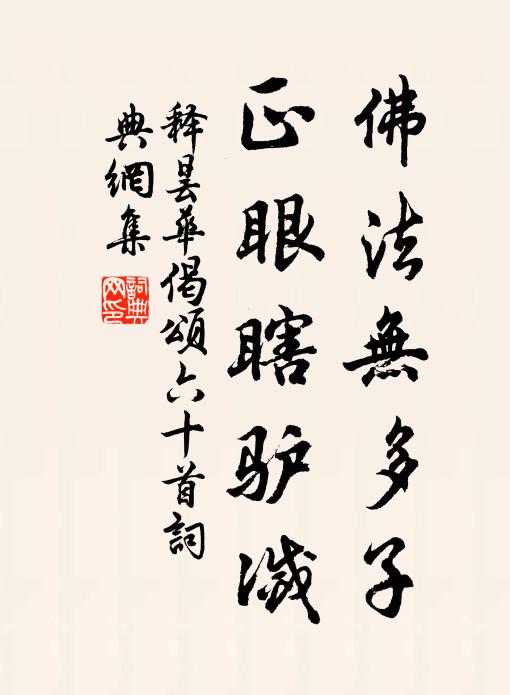 佛法無多子
正眼瞎驴滅
释昙華偈頌六十首詞
典網集
詞典網印